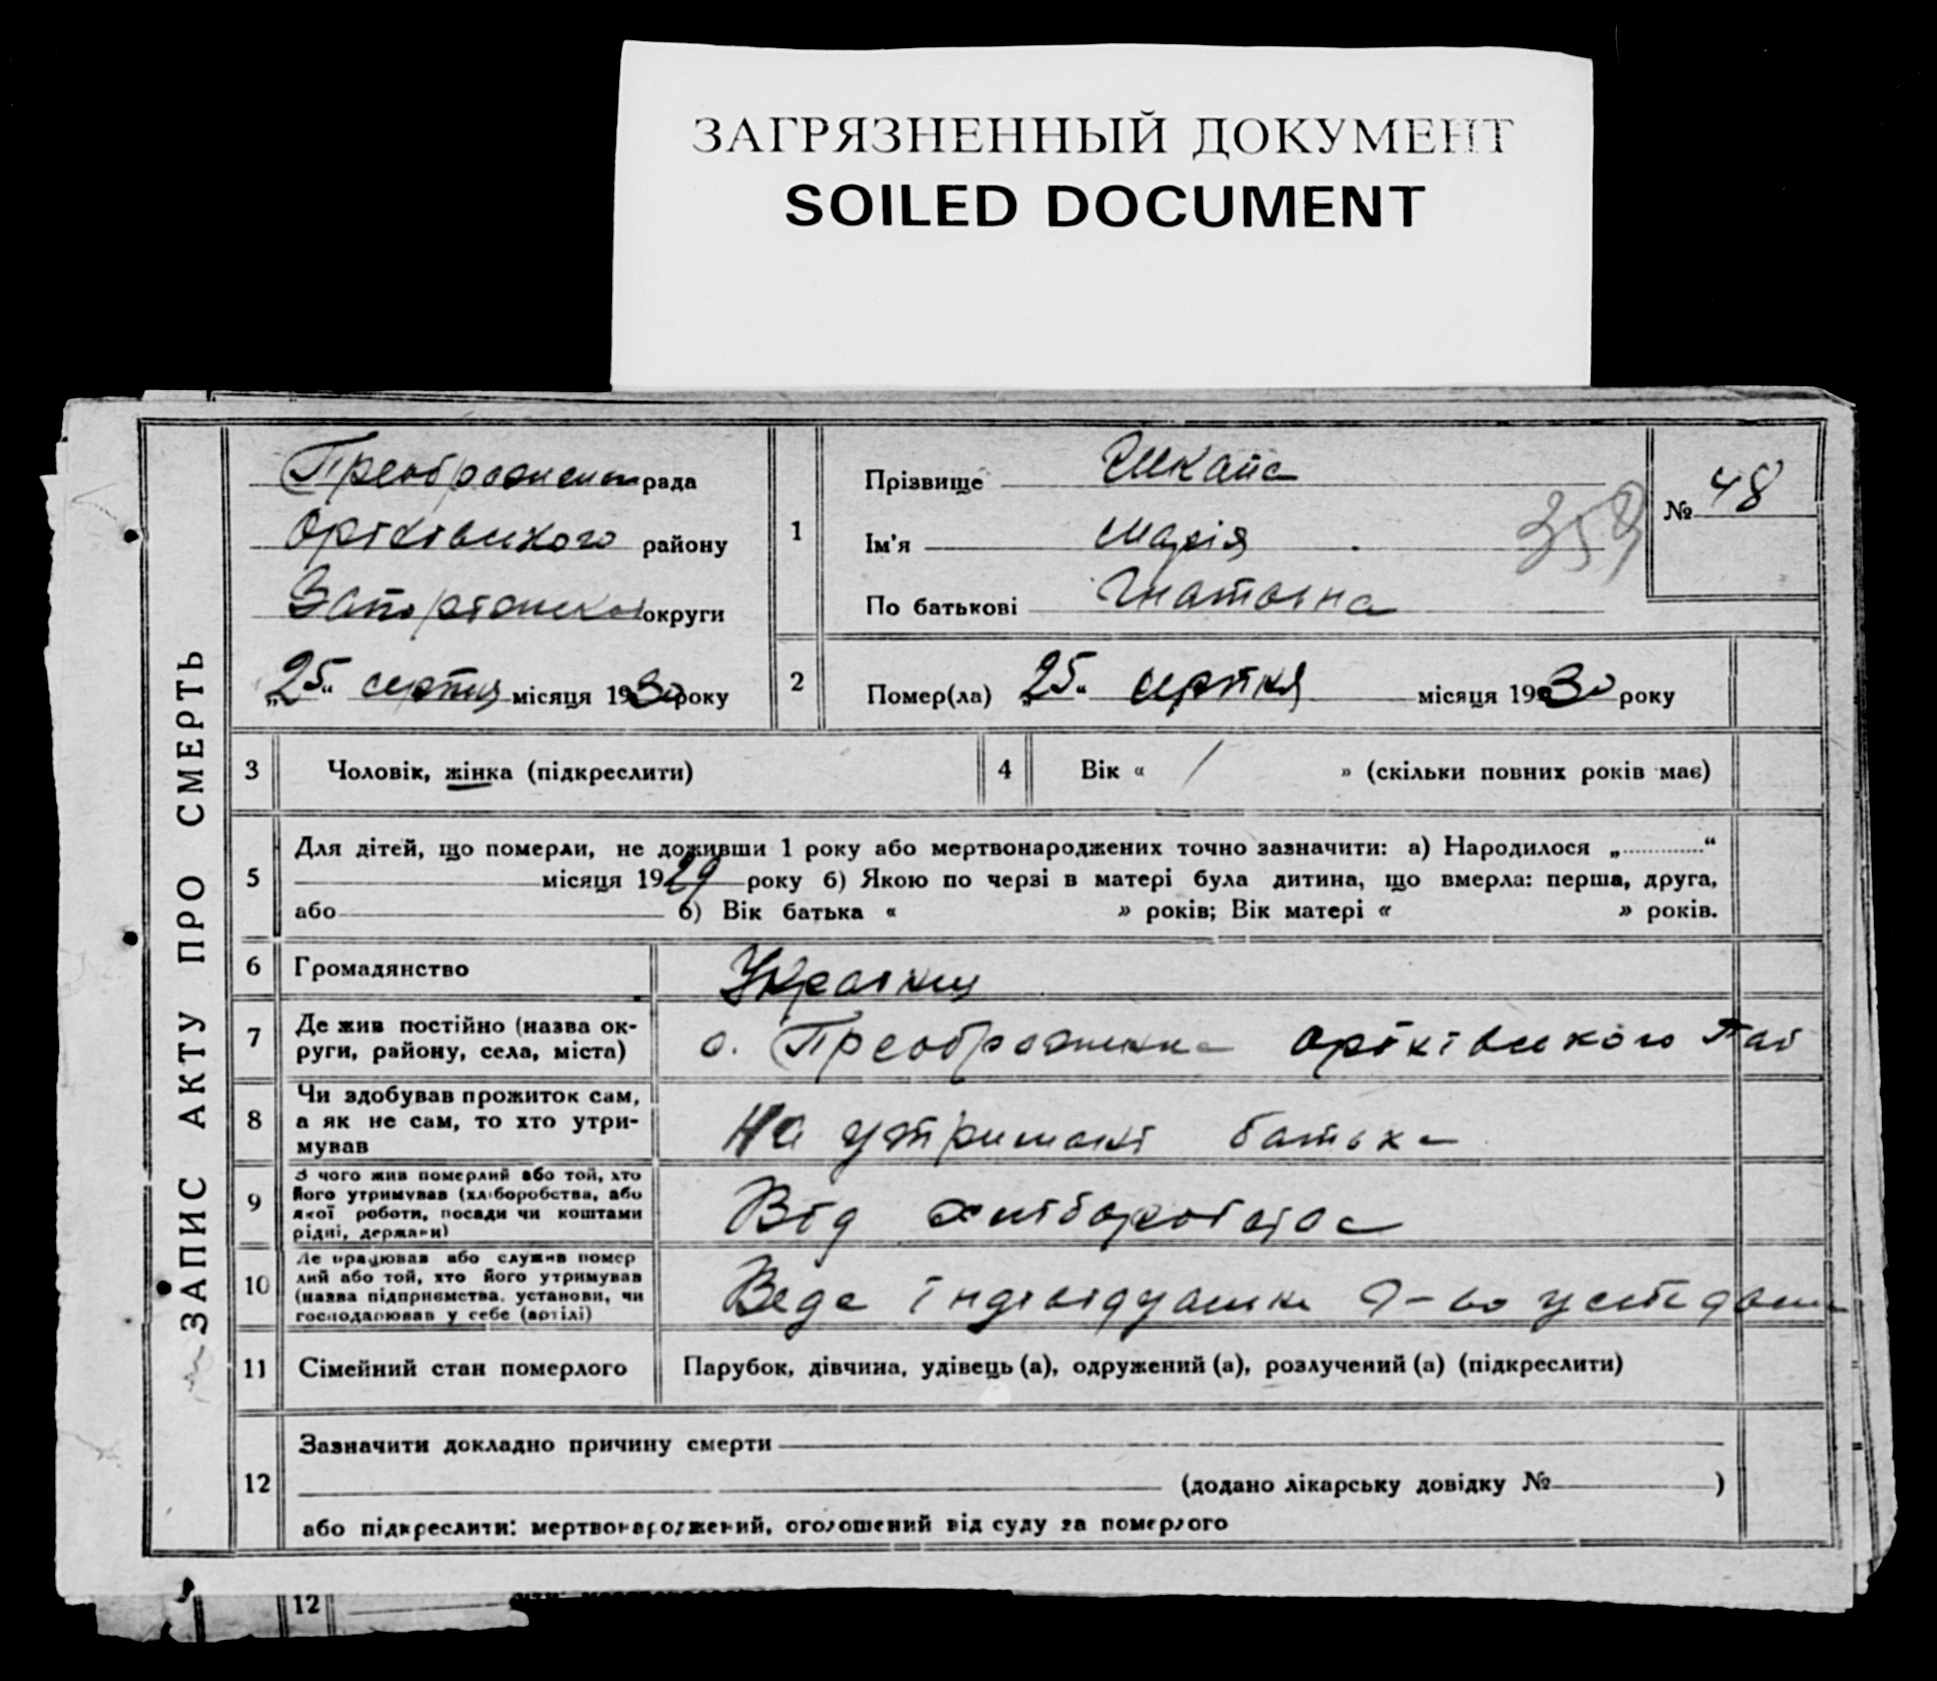 ЗАГРЯЗНЕННЫЙ ДОКУМЕНТ
SOILED DOCUMENT
ЗАПИС АКТУ ПРО СМЕРТЬ
рада
Оріхівського району
округи
„25“ серпня місяця 1930 року
1
Прізвище
Ім'я Марія
По батькові Гнатовна
359
№ 48
2
Помер(ла) „25“ серпня місяця 1930 року
3 Чоловік, жінка (підкреслити)
4 Вік « 1 » (скільки повних років має)
5 Для дітей, що померли, не доживши 1 року або мертвонароджених точно зазначити: а) Народилося „............“
місяця 1929 року б) Якою по черзі в матері була дитина, що вмерла: перша, друга,
або б) Вік батька « » років; Вік матері « » років.
6 Громадянство
7 Де жив постійно (назва ок-
руги, району, села, міста)
с. Преображенка Оріхівського
8 Чи здобував прожиток сам,
а як не сам, то хто утри-
мував
На утримані батька
9 З чого жив померлий або той, хто
його утримував (хліборобства, або
якої роботи, посади чи коштами
рідні, держави)
Від хліборобства
10 Де працював або служив помер
лий або той, хто його утримував
(назва підприємства, установи, чи
господарював у себе (артілі)
Веде
11 Сімейний стан померлого
Парубок, дівчина, удівець (а), одружений (а), розлучений (а) (підкреслити)
12 Зазначити докладно причину смерти
(додано лікарську довідку № )
або підкреслити: мертвонароджений, оголошений від суду за померлого
12